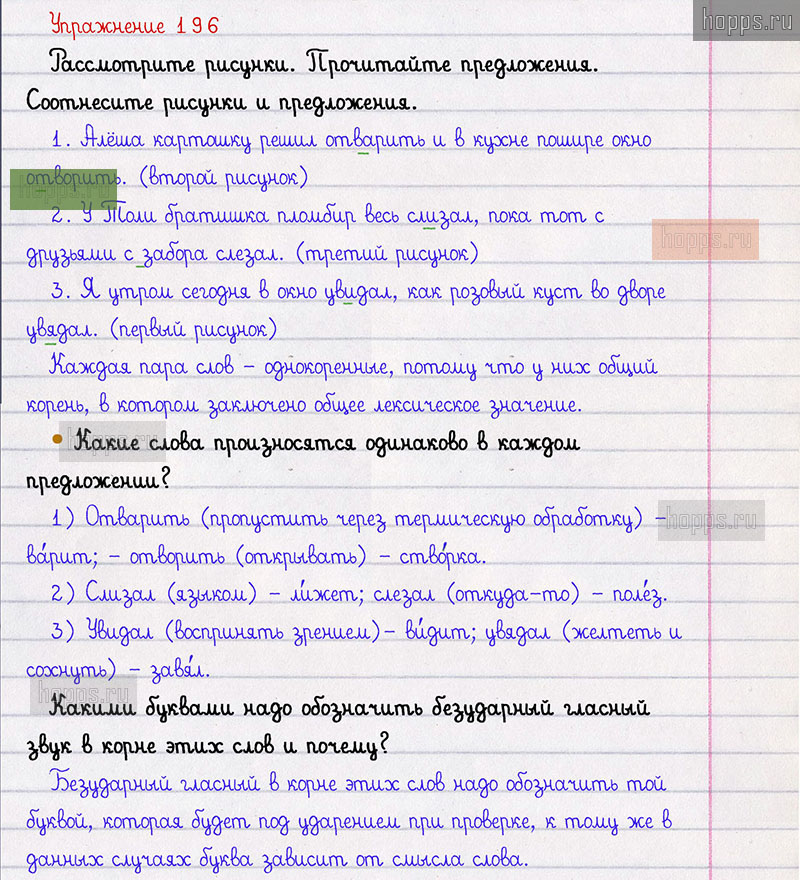 hopps.ru
Упражнение 196
Рассмотрите рисунки. Прочитайте предложения.
Соотнесите рисунки и предложения.
1. Алёша картошку решил отварить и в кухне пошире окно
отворить. (второй рисунок)
hopps.ru
2. У Толи братишка пломбир весь слизал, пока тот с
hopps.ru
друзьями с забора слезал. (третий рисунок)
3. Я утром сегодня в окно увидал, как розовый куст во дворе
увядал. (первый рисунок)
Каждая пара слов – однокоренные, потому что у них общий
корень, в котором заключено общее лексическое значение.
hopps.ru
• Какие слова произносятся одинаково в каждом
предложении?
1) Отварить (пропустить через термическую обработку) –
hopps.ru
ва́рит; – отворить (открывать) – ство́рка.
2) Слизал (языком) – ли́жет; слезал (откуда-то) – поле́з.
3) Увидал (воспринять зрением)– ви́дит; увядал (желтеть и
сохнуть) – завя́л.
hopps.ru
Какими буквами надо обозначить безударный гласный
звук в корне этих слов и почему?
Безударный гласный в корне этих слов надо обозначить той
буквой, которая будет под ударением при проверке, к тому же в
данных случаях буква зависит от смысла слова.